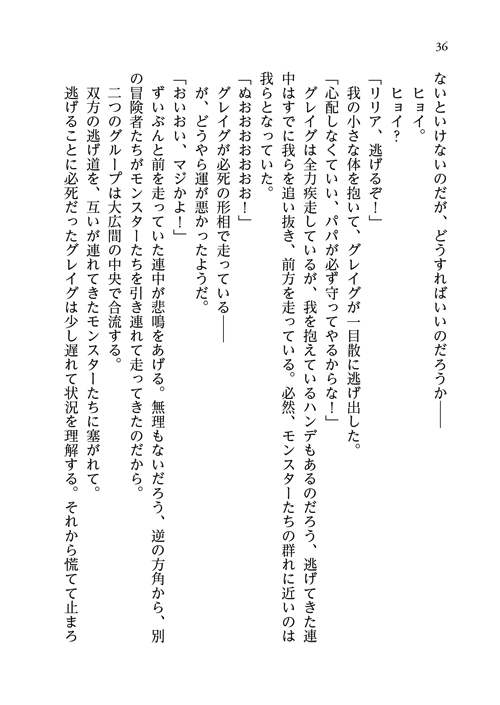 36
ないといけないのだが、どうすればいいのだろうか――
ヒョイ。
ヒョイ？
「リリア、逃げるぞ！」
我の小さな体を抱いて、グレイグが一目散に逃げ出した。
「心配しなくていい、パパが必ず守ってやるからな！」
グレイグは全力疾走しているが、我を抱えているハンデもあるのだろう、逃げてきた連
中はすでに我らを追い抜き、前方を走っている。必然、モンスターたちの群れに近いのは
我らとなっていた。
「ぬおおおおおおお！」
グレイグが必死の形相で走っている――
が、どうやら運が悪かったようだ。
「おいおい、マジかよ！」
ずいぶんと前を走っていた連中が悲鳴をあげる。無理もないだろう、逆の方角から、別
の冒険者たちがモンスターたちを引き連れて走ってきたのだから。
二つのグループは大広間の中央で合流する。
双方の逃げ道を、互いが連れてきたモンスターたちに塞がれて。
逃げることに必死だったグレイグは少し遅れて状況を理解する。それから慌てて止まろ